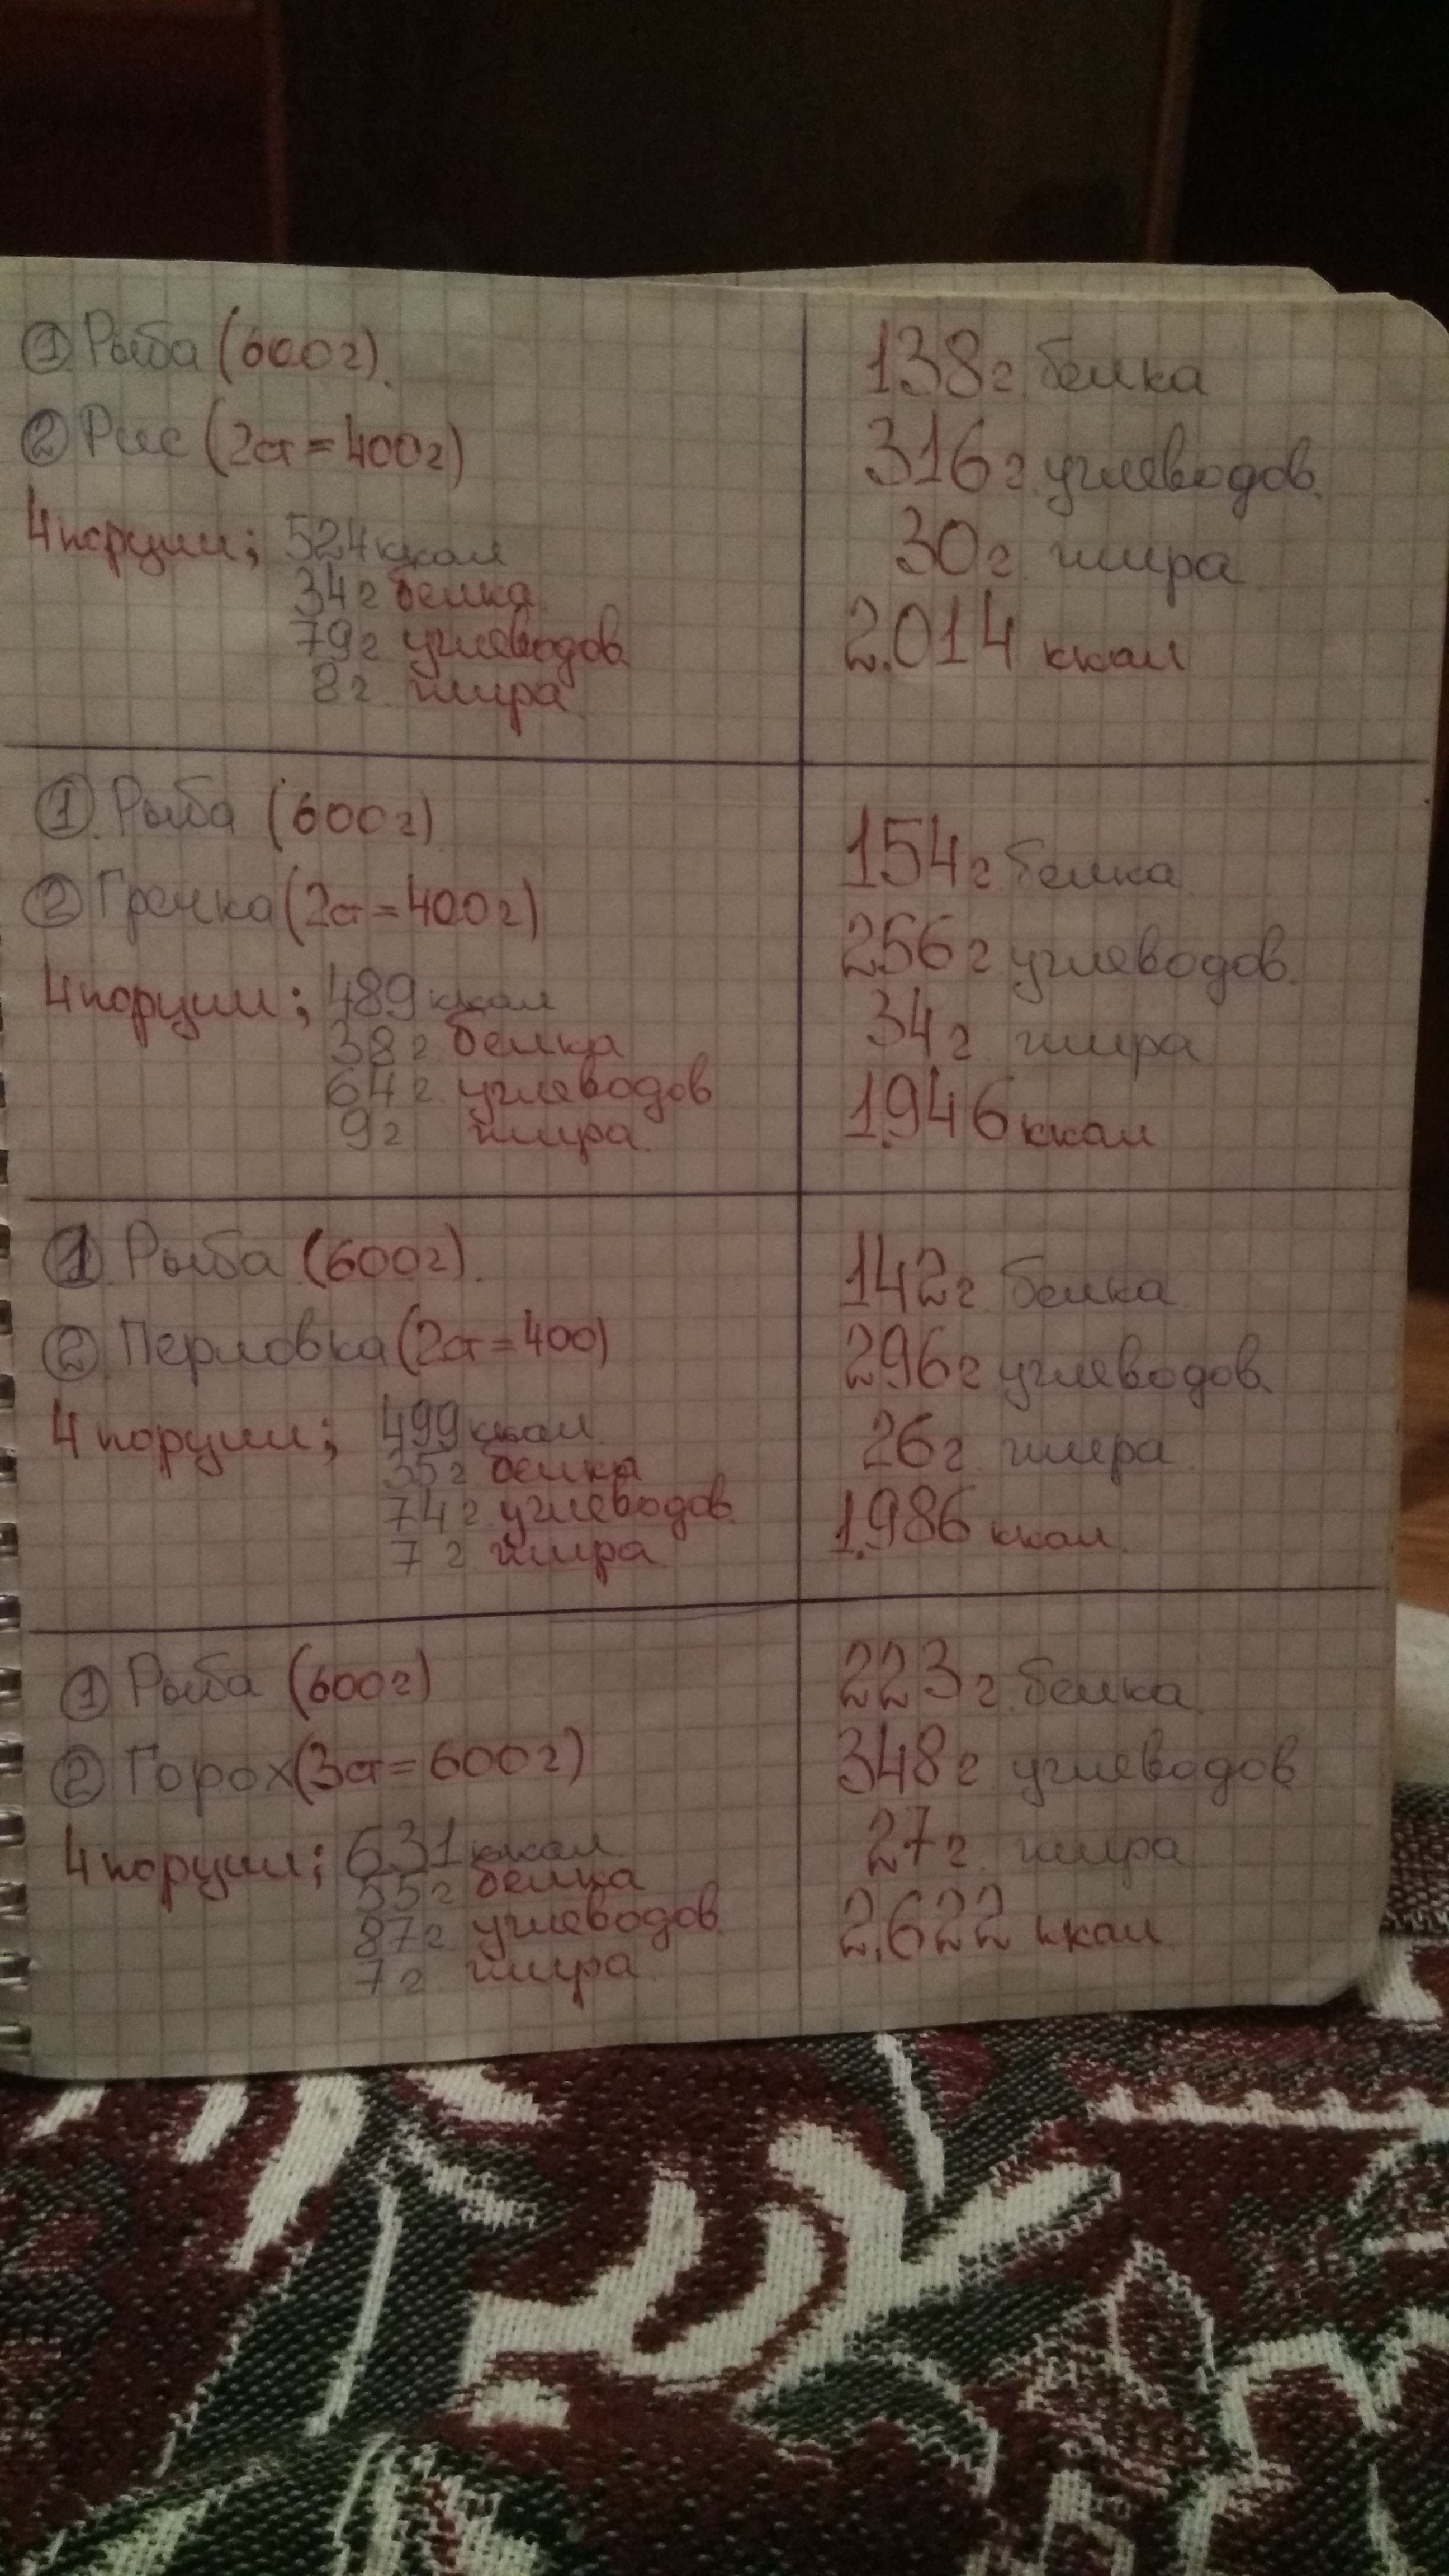 ① Рыба (600г).
② Рис (2ст=400г)
4 порции; 524 ккал
34г белка
79г углеводов
8г. жира
138г белка
316г углеводов.
30г жира
2.014 ккал
① Рыба (600г)
② Гречка (2ст=400г)
4 порции; 489 ккал
38г белка
64г. углеводов
9г жира
154г белка
256г углеводов.
34г. жира
1.946 ккал
① Рыба (600г).
② Перловка (2ст=400)
4 порции; 499 ккал
35г белка
74г углеводов
7г жира
142г белка
296г углеводов
26г жира
1.986 ккал
① Рыба (600г)
② Горох (3ст=600г)
4 порции; 631 ккал
55г белка
87г углеводов
7г. жира
223г белка
348г углеводов
27г. жира
2.622 ккал